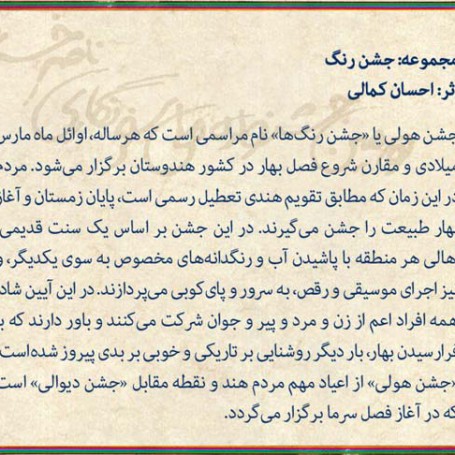 مجموعه: جشن رنگ
اثر: احسان کمالی
جشن هولی یا «جشن رنگ‌ها» نام مراسمی است که هرساله، اوائل ماه مارس
میلادی و مقارن شروع فصل بهار در کشور هندوستان برگزار می‌شود. مردم
در این زمان که مطابق تقویم هندی تعطیل رسمی است، پایان زمستان و آغاز
بهار طبیعت را جشن می‌گیرند. در این جشن بر اساس یک سنت قدیمی
اهالی هر منطقه با پاشیدن آب و رنگدانه‌های مخصوص به سوی یکدیگر، و
نیز اجرای موسیقی و رقص، به سرور و پای‌کوبی می‌پردازند. در این آیین شاد
همه افراد اعم از زن و مرد و پیر و جوان شرکت می‌کنند و باور دارند که با
فرارسیدن بهار، بار دیگر روشنایی بر تاریکی و خوبی بر بدی پیروز شده‌است
«جشن هولی» از اعیاد مهم مردم هند و نقطه مقابل «جشن دیوالی» است
که در آغاز فصل سرما برگزار می‌گردد.